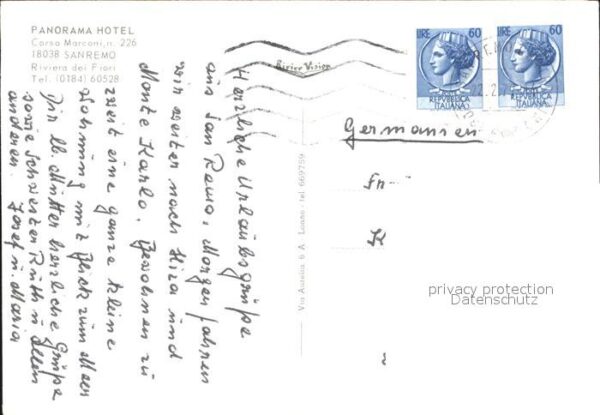 PANORAMA HOTEL
Corso Marconi, n. 226
18038 SANREMO
Riviera dei Fiori
Tel. (0184) 60528
Herzliche Urlaubsgrüße
aus San Remo, Morgen fahren
wir weiter nach Niza und
Monte Karlo. Bewohnen zu
zweit eine ganze kleine
Wohnung mit Blick zum Meer
Dir lb. Mutter herzliche Grüße
sowie Schwester Ruth u allen
anderen. Josef u. Maria
Via Aurelia, 6 A Loano - tel. 669759
LIRE 60
REPVBBLICA
ITALIANA
LIRE 60
REPVBBLICA
ITALIANA
Germanien
Fr
K
privacy protection
Datenschutz